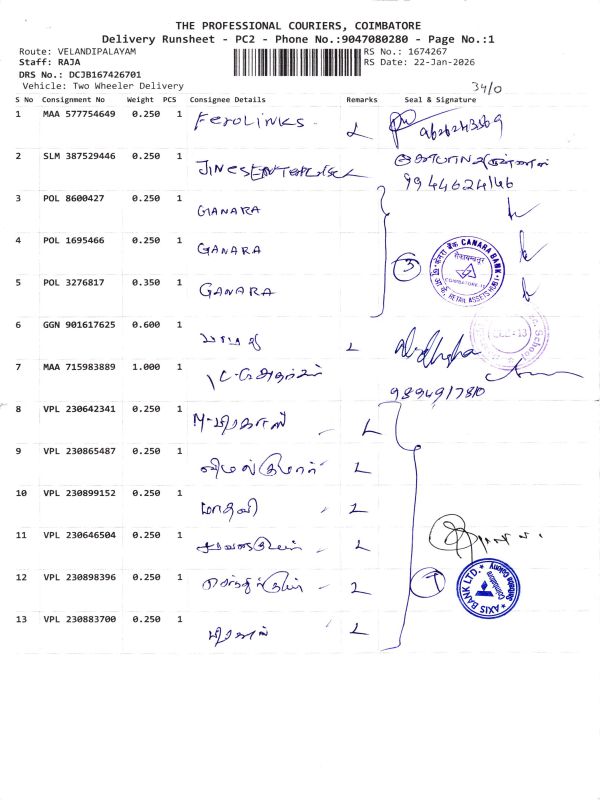 THE PROFESSIONAL COURIERS, COIMBATORE
Delivery Runsheet - PC2 - Phone No.:9047080280 - Page No.:1
Route: VELANDIPALAYAM RS No.: 1674267
Staff: RAJA RS Date: 22-Jan-2026
DRS No.: DCJB167426701
Vehicle: Two Wheeler Delivery 34/0
S No Consignment No Weight PCS Consignee Details Remarks Seal & Signature
1 MAA 577754649 0.250 1 FEROLINKS L
2 SLM 387529446 0.250 1 9944624146
3 POL 8600427 0.250 1 CANARA
4 POL 1695466 0.250 1 CANARA
5 POL 3276817 0.350 1 CANARA
CANARA BANK
COIMBATORE
RETAIL ASSETS HUB
6 GGN 901617625 0.600 1 L
7 MAA 715983889 1.000 1
8 VPL 230642341 0.250 1 M. பிரகாஸ் L
9 VPL 230865487 0.250 1 விமல்குமார் L
10 VPL 230899152 0.250 1 மாதவி L
11 VPL 230646504 0.250 1 L
12 VPL 230898396 0.250 1 L
AXIS BANK LTD.
Coimbatore
13 VPL 230883700 0.250 1 L